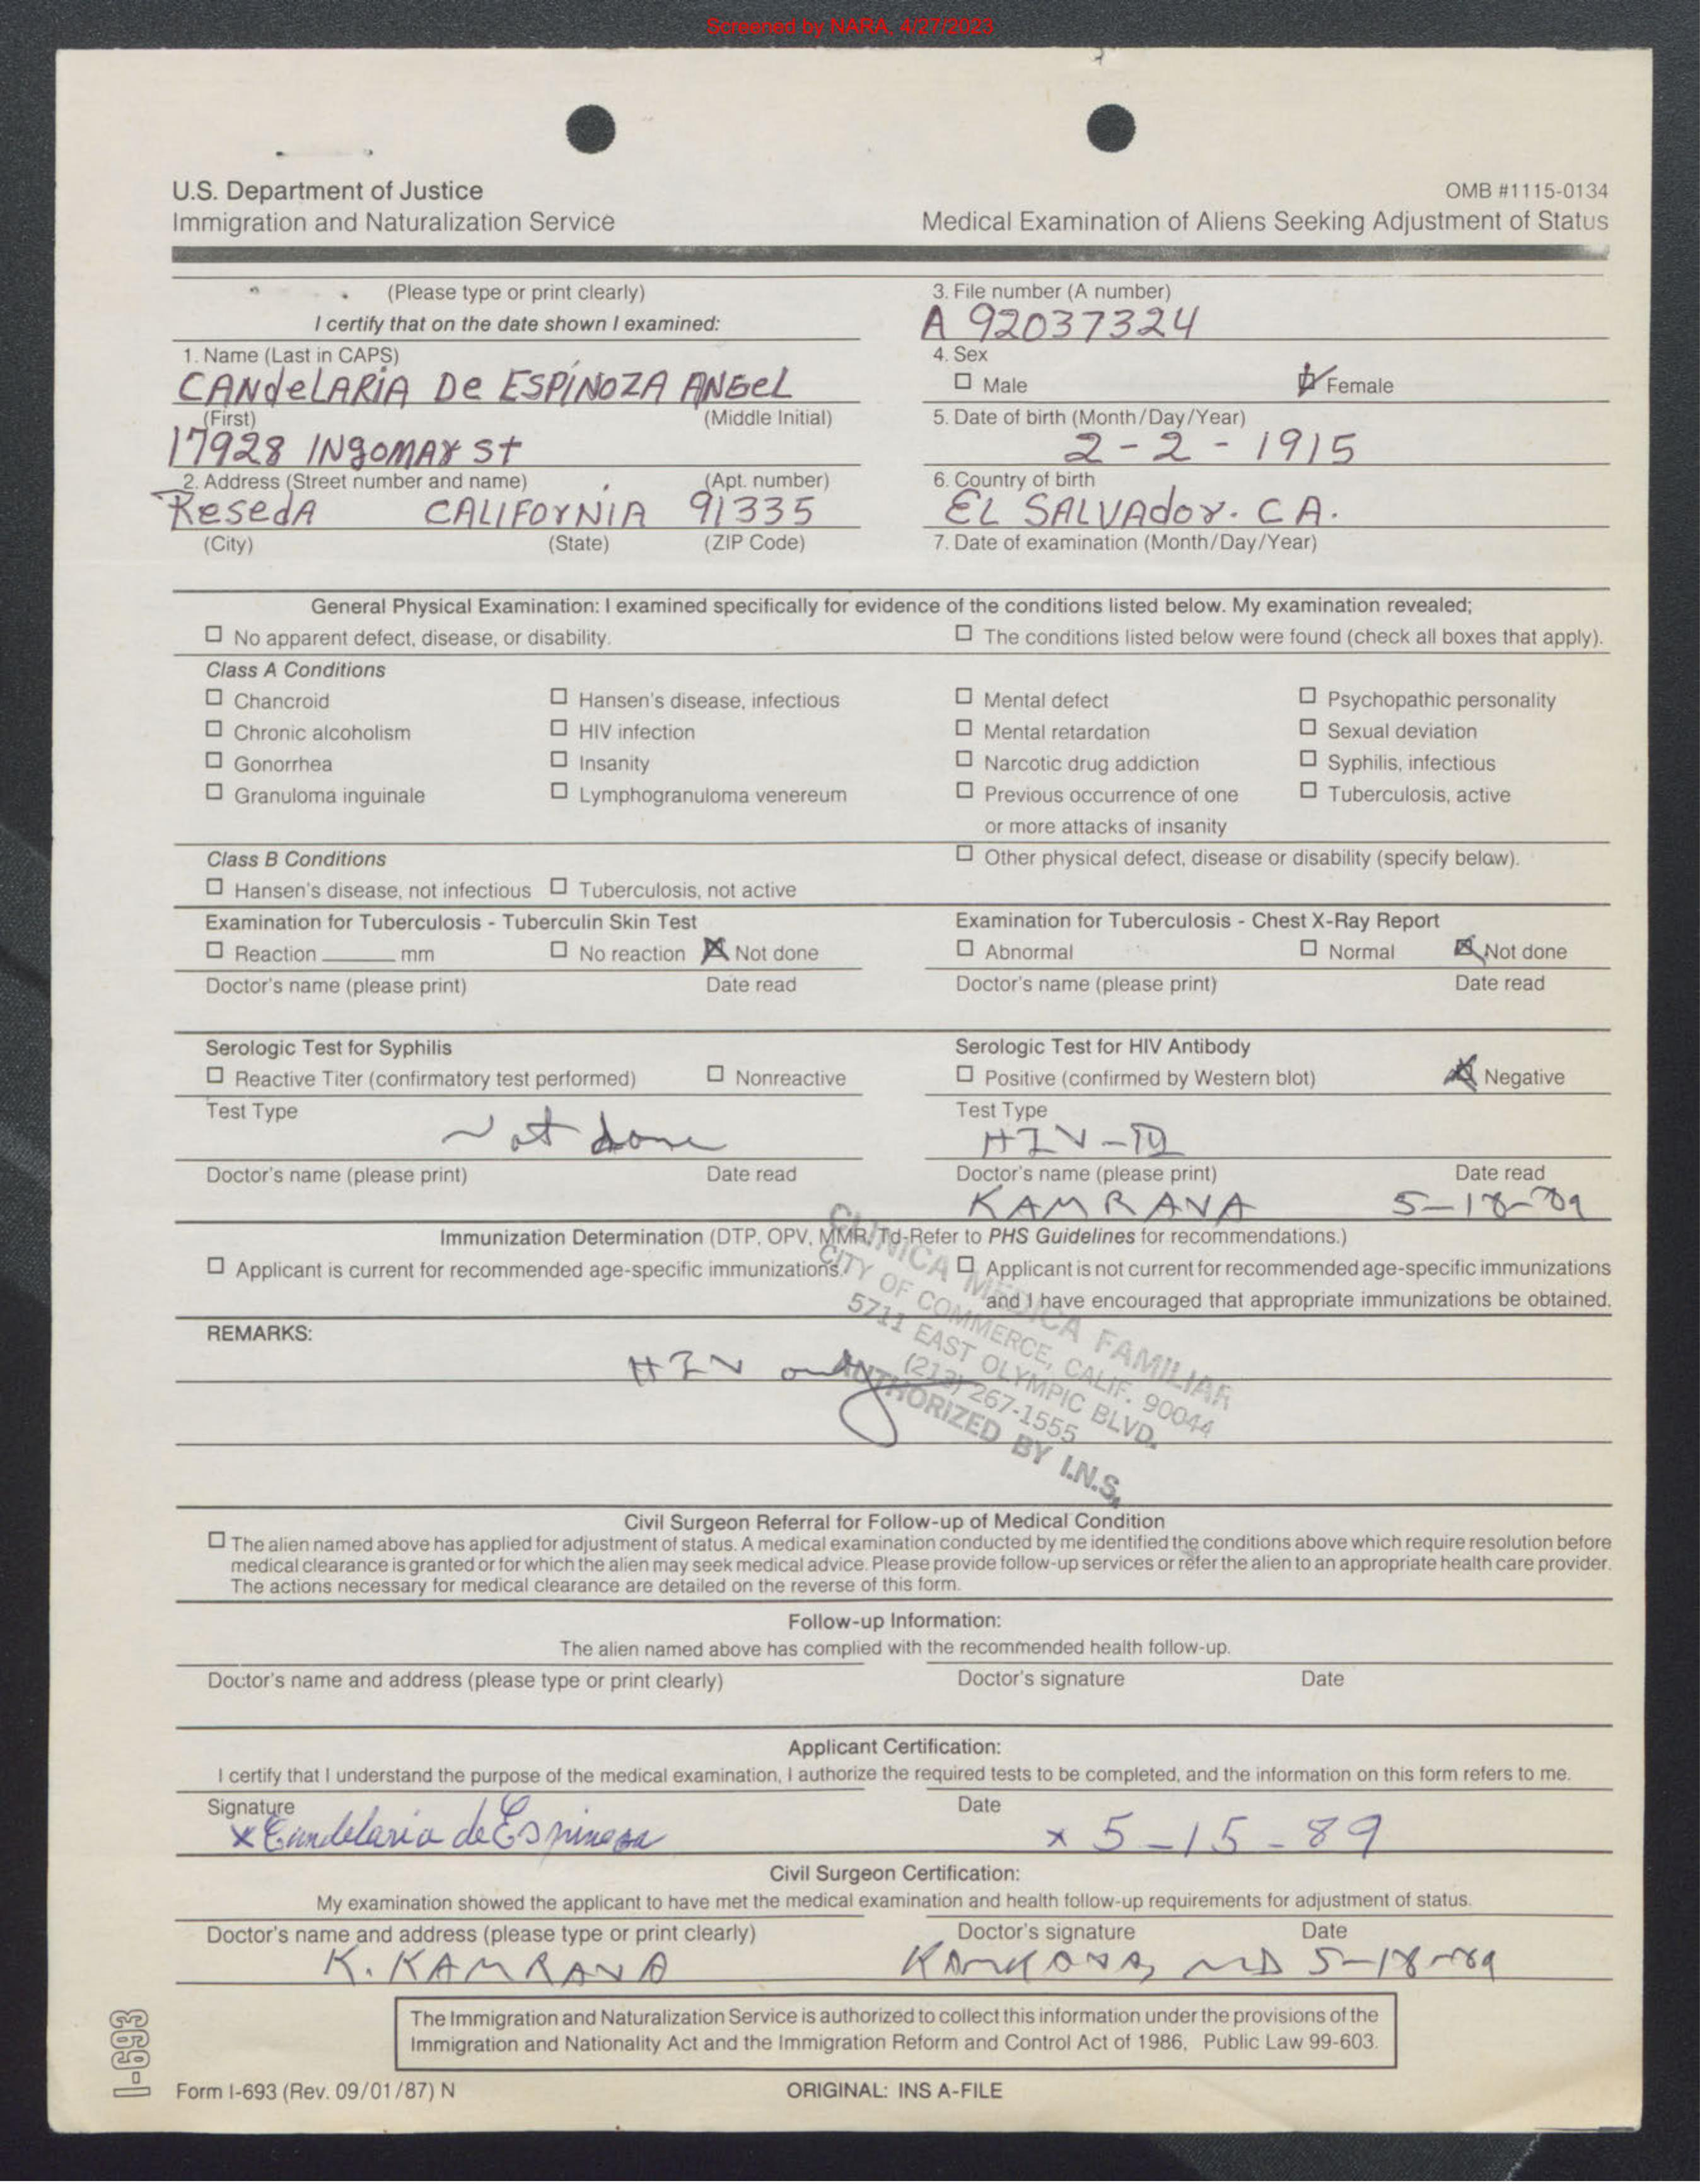 Screened by NARA, 4/27/2023
U.S. Department of Justice
Immigration and Naturalization Service
OMB #1115-0134
Medical Examination of Aliens Seeking Adjustment of Status
(Please type or print clearly)
I certify that on the date shown I examined:
3. File number (A number)
A 92037324
1. Name (Last in CAPS)
CANdeLARIA De ESPINOZA ANGeL
(First) (Middle Initial)
4. Sex
☐ Male ☑ Female
17928 INgOMAr St
2. Address (Street number and name) (Apt. number)
5. Date of birth (Month/Day/Year)
2-2-1915
ReSedA CALIFOrNIA 91335
(City) (State) (ZIP Code)
6. Country of birth
EL SALVAdor. C A.
7. Date of examination (Month/Day/Year)
General Physical Examination: I examined specifically for evidence of the conditions listed below. My examination revealed;
☐ No apparent defect, disease, or disability. ☐ The conditions listed below were found (check all boxes that apply).
Class A Conditions
☐ Chancroid ☐ Hansen's disease, infectious ☐ Mental defect ☐ Psychopathic personality
☐ Chronic alcoholism ☐ HIV infection ☐ Mental retardation ☐ Sexual deviation
☐ Gonorrhea ☐ Insanity ☐ Narcotic drug addiction ☐ Syphilis, infectious
☐ Granuloma inguinale ☐ Lymphogranuloma venereum ☐ Previous occurrence of one ☐ Tuberculosis, active
or more attacks of insanity
Class B Conditions ☐ Other physical defect, disease or disability (specify below).
☐ Hansen's disease, not infectious ☐ Tuberculosis, not active
Examination for Tuberculosis - Tuberculin Skin Test
☐ Reaction ______ mm ☐ No reaction ☒ Not done
Doctor's name (please print) Date read
Examination for Tuberculosis - Chest X-Ray Report
☐ Abnormal ☐ Normal ☒ Not done
Doctor's name (please print) Date read
Serologic Test for Syphilis
☐ Reactive Titer (confirmatory test performed) ☐ Nonreactive
Test Type
Not done
Doctor's name (please print) Date read
Serologic Test for HIV Antibody
☐ Positive (confirmed by Western blot) ☒ Negative
Test Type
HIV-
Doctor's name (please print) Date read
KAMRAVA 5-18-89
Immunization Determination (DTP, OPV, MMR, Td-Refer to PHS Guidelines for recommendations.)
☐ Applicant is current for recommended age-specific immunizations. ☐ Applicant is not current for recommended age-specific immunizations
and I have encouraged that appropriate immunizations be obtained.
REMARKS:
HIV only
CLINICA MEDICA FAMILIAR
CITY OF COMMERCE, CALIF. 90044
5711 EAST OLYMPIC BLVD.
(213) 267-1555
AUTHORIZED BY I.N.S.
Civil Surgeon Referral for Follow-up of Medical Condition
☐ The alien named above has applied for adjustment of status. A medical examination conducted by me identified the conditions above which require resolution before
medical clearance is granted or for which the alien may seek medical advice. Please provide follow-up services or refer the alien to an appropriate health care provider.
The actions necessary for medical clearance are detailed on the reverse of this form.
Follow-up Information:
The alien named above has complied with the recommended health follow-up.
Doctor's name and address (please type or print clearly) Doctor's signature Date
Applicant Certification:
I certify that I understand the purpose of the medical examination, I authorize the required tests to be completed, and the information on this form refers to me.
Signature Date
x Candelaria de Espinosa x 5-15-89
Civil Surgeon Certification:
My examination showed the applicant to have met the medical examination and health follow-up requirements for adjustment of status.
Doctor's name and address (please type or print clearly) Doctor's signature Date
K. KAMRAVA KAMRAVA, MD 5-18-89
The Immigration and Naturalization Service is authorized to collect this information under the provisions of the
Immigration and Nationality Act and the Immigration Reform and Control Act of 1986, Public Law 99-603.
I-693
Form I-693 (Rev. 09/01/87) N
ORIGINAL: INS A-FILE